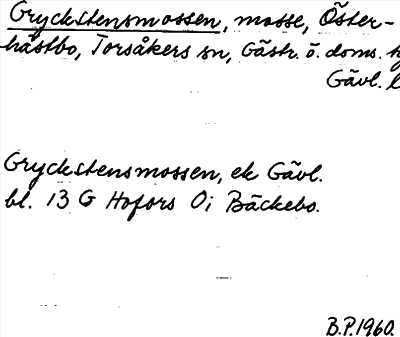 Gryckstensmossen, mosse, Öster-
hästbo, Torsåkers sn, Gästr. ö. doms.
Gävl. l
Gryckstensmossen, ek Gävl.
bl. 13 G Hofors 0i Bäckebo.
B.P. 1960.